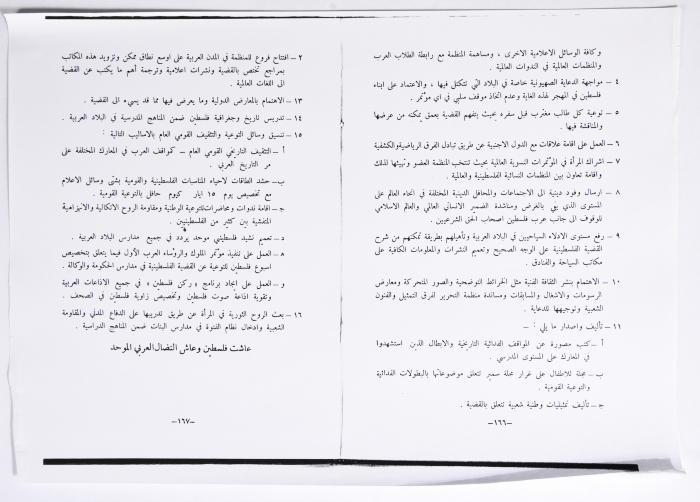 وكافة الوسائل الاعلامية الاخرى ، ومساهمة المنظمة مع رابطة الطلاب العرب
والمنظمات العالمية في الندوات العالمية .
٤ – مواجهة الدعاية الصهيونية خاصة في البلاد التي تتكتل فيها ، والاعتماد على ابناء
فلسطين في المهجر لهذه الغاية وعدم اتخاذ موقف سلبي في اي مؤتمر .
٥ – توعية كل طالب مغترب قبل سفره بحيث يتفهم القضية بعمق يمكنه من عرضها
والمناقشة فيها .
٦ – العمل على اقامة علاقات مع الدول الاجنبية عن طريق تبادل الفرق الرياضية والكشفية
٧ – اشراك المرأة في المؤتمرات النسوية العالمية بحيث تنتخب المنظمة العضو وتهيئها لذلك
واقامة تعاون بين المنظمات النسائية الفلسطينية والعالمية .
٨ – ارسال وفود دينية الى الاجتماعات والمحافل الدينية المختلفة في انحاء العالم على
المستوى الذي يفي بالغرض ومناشدة الضمير الانساني العالمي والعالم الاسلامي
للوقوف الى جانب عرب فلسطين اصحاب الحق الشرعيين .
٩ – رفع مستوى الادلاء السياحيين في البلاد العربية وتأهيلهم بطريقة تمكنهم من شرح
القضية الفلسطينية على الوجه الصحيح وتعميم النشرات والمعلومات الكافية على
مكاتب السياحة والفنادق .
١٠ – الاهتمام بنشر الثقافة الفنية مثل الخرائط التوضحية والصور المتحركة ومعارض
الرسومات والاشغال والمسابقات ومساندة منظمة التحرير لفرق التمثيل والفنون
الشعبية وتوجيهها للدعاية .
١١ – تأليف واصدار ما يلي : –
أ – كتب مصورة عن المواقف الفدائية التاريخية والابطال الذين استشهدوا
في المعارك على المستوى المدرسي .
ب – مجلة للاطفال على غرار مجلة سمير تتعلق موضوعاتها بالبطولات الفدائية
والتوعية القومية .
ج – تأليف تمثيليات وطنية شعبية تتعلق بالقضية .
–١٦٦–
٢ – افتتاح فروع للمنظمة في المدن العربية على اوسع نطاق ممكن وتزويد هذه المكاتب
بمراجع تختص بالقضية ونشرات اعلامية وترجمة أهم ما يكتب عن القضية
الى اللغات العالمية .
١٣ – الاهتمام بالمعارض الدولية وما يعرض فيها مما قد يسيء الى القضية .
١٤ – تدريس تاريخ وجغرافية فلسطين ضمن المناهج المدرسية في البلاد العربية .
١٥ – تنسيق وسائل التوعية والتثقيف القومي العام بالاساليب التالية :
أ – التثقيف التاريخي القومي العام – كمواقف العرب في المعارك المختلفة على
مر التاريخ العربي .
ب – حشد الطاقات لاحياء المناسبات الفلسطينية والقومية بشتى وسائل الاعلام
مع تخصيص يوم ١٥ ايار كيوم حافل بالتوعية القومية .
ج – اقامة ندوات ومحاضرات للتوعية الوطنية ومقاومة الروح الاتكالية والانهزامية
المتفشية بين كثير من الفلسطينيين .
د – تعميم نشيد فلسطيني موحد يردد في جميع مدارس البلاد العربية .
ه – العمل على تنفيذ مؤتمر الملوك والرؤساء العرب الأول فيما يتعلق بتخصيص
اسبوع فلسطين للتوعية عن القضية الفلسطينية في مدارس الحكومة والوكالة .
و – العمل على ايجاد برنامج « ركن فلسطين » في جميع الاذاعات العربية
وتقوية اذاعة صوت فلسطين وتخصيص زاوية فلسطين في الصحف .
١٦ – بعث الروح الثورية في المرأة عن طريق تدريبها على الدفاع المدني والمقاومة
الشعبية وادخال نظام الفتوة في مدارس البنات ضمن المناهج الدراسية .
عاشت فلسطين وعاش النضال العربي الموحد
–١٦٧–